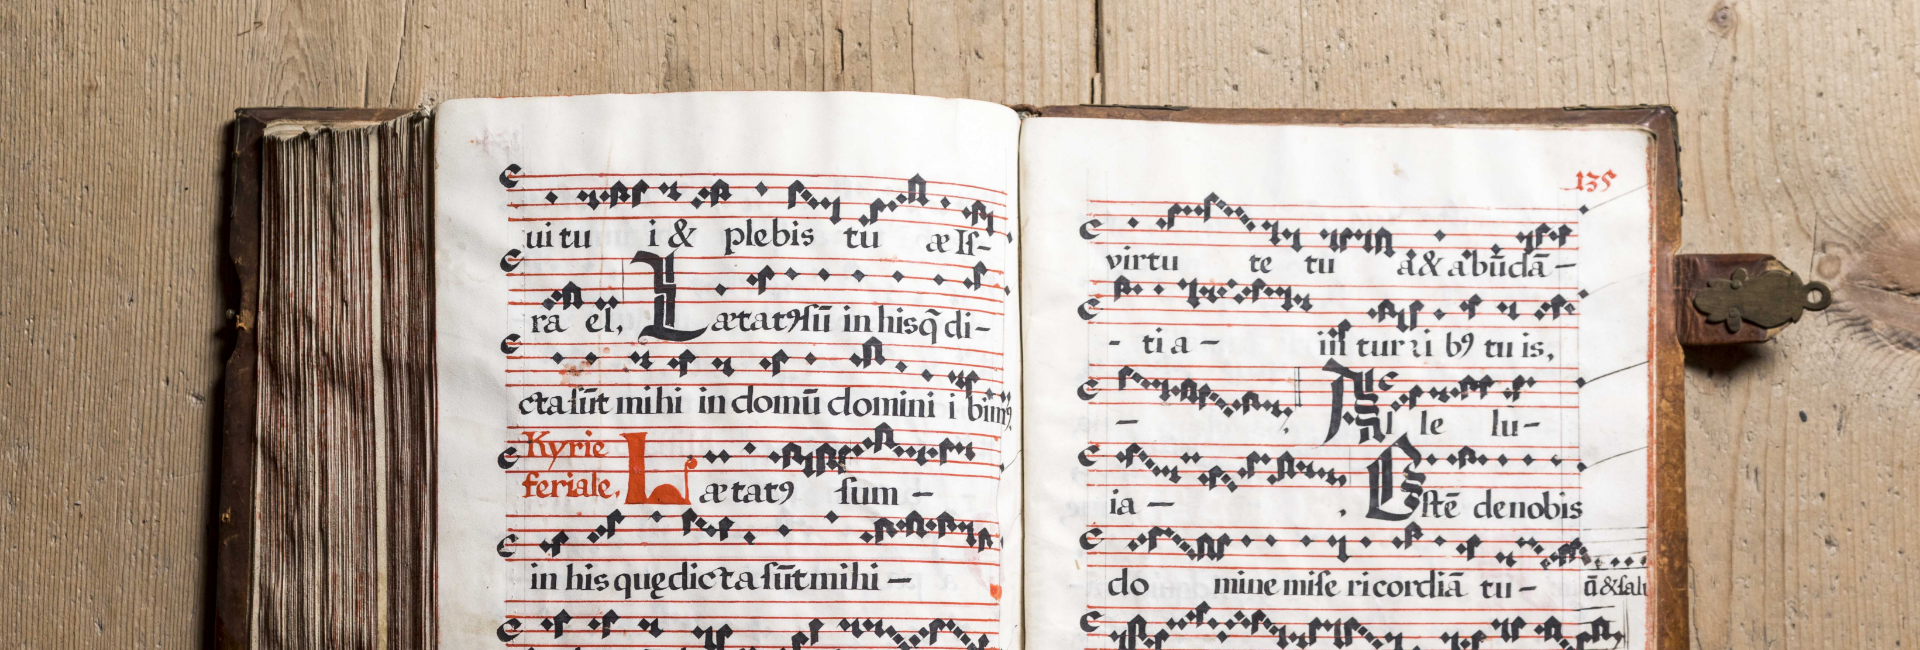 ui tu i & plebis tu æ Iſ-
ra el, Lætatꝰ sū in his q̄ di-
cta sūt mihi in domū domini i bimꝰ,
Kyrie
feriale. Lætatꝰ ſum -
in his quę dicta ſūt mihi -
135
virtu te tu ā & abūdā-
- ti a - in turri bꝰ tu is,
- Al le lu-
ia - . Oſtē de nobis
do mine miſe ricordiā tu - ā & ſalu